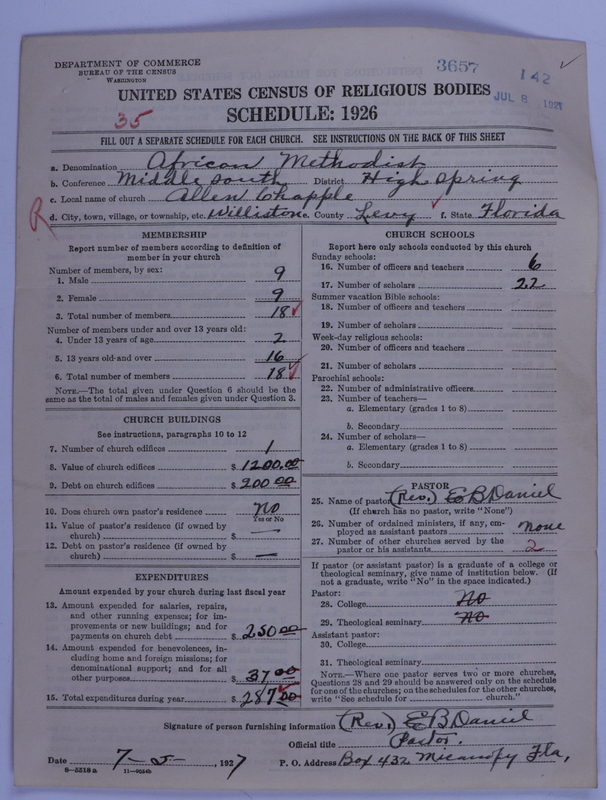 DEPARTMENT OF COMMERCE
BUREAU OF THE CENSUS
WASHINGTON
3657
142
UNITED STATES CENSUS OF RELIGIOUS BODIES
JUL 8 1927
35
SCHEDULE: 1926
FILL OUT A SEPARATE SCHEDULE FOR EACH CHURCH. SEE INSTRUCTIONS ON THE BACK OF THIS SHEET
a. Denomination African Methodist
b. Conference Middle South District High Spring
c. Local name of church Allen Chapple
R d. City, town, village, or township, etc. Williston e. County Levy f. State Florida
MEMBERSHIP
Report number of members according to definition of
member in your church
Number of members, by sex:
1. Male 9
2. Female 9
3. Total number of members 18
Number of members under and over 13 years old:
4. Under 13 years of age 2
5. 13 years old and over 16
6. Total number of members 18
NOTE.—The total given under Question 6 should be the
same as the total of males and females given under Question 3.
CHURCH BUILDINGS
See instructions, paragraphs 10 to 12
7. Number of church edifices 1
8. Value of church edifices $ 1200.00
9. Debt on church edifices $ 200 00
10. Does church own pastor's residence No
Yes or No
11. Value of pastor's residence (if owned by
church) $ —
12. Debt on pastor's residence (if owned by
church) $ —
EXPENDITURES
Amount expended by your church during last fiscal year
13. Amount expended for salaries, repairs,
and other running expenses; for im-
provements or new buildings; and for
payments on church debt $ 250 00
14. Amount expended for benevolences, in-
cluding home and foreign missions; for
denominational support; and for all
other purposes $ 37 00
15. Total expenditures during year $ 287 00
CHURCH SCHOOLS
Report here only schools conducted by this church
Sunday schools:
16. Number of officers and teachers 6
17. Number of scholars 22
Summer vacation Bible schools:
18. Number of officers and teachers
19. Number of scholars
Week-day religious schools:
20. Number of officers and teachers
21. Number of scholars
Parochial schools:
22. Number of administrative officers
23. Number of teachers—
a. Elementary (grades 1 to 8)
b. Secondary
24. Number of scholars—
a. Elementary (grades 1 to 8)
b. Secondary
PASTOR
25. Name of pastor (Rev.) E B Daniel
(If church has no pastor, write "None")
26. Number of ordained ministers, if any, em-
ployed as assistant pastors none
27. Number of other churches served by the
pastor or his assistants 2
If pastor (or assistant pastor) is a graduate of a college or
theological seminary, give name of institution below. (If
not a graduate, write "No" in the space indicated.)
Pastor:
28. College No
29. Theological seminary No
Assistant pastor:
30. College
31. Theological seminary
NOTE.—Where one pastor serves two or more churches,
Questions 28 and 29 should be answered only on the schedule
for one of the churches; on the schedules for the other churches,
write "See schedule for church."
Signature of person furnishing information (Rev.) E B Daniel
Official title Pastor.
Date 7-5-, 1927 P. O. Address Box 432 Micanopy Fla,
8—5318 a